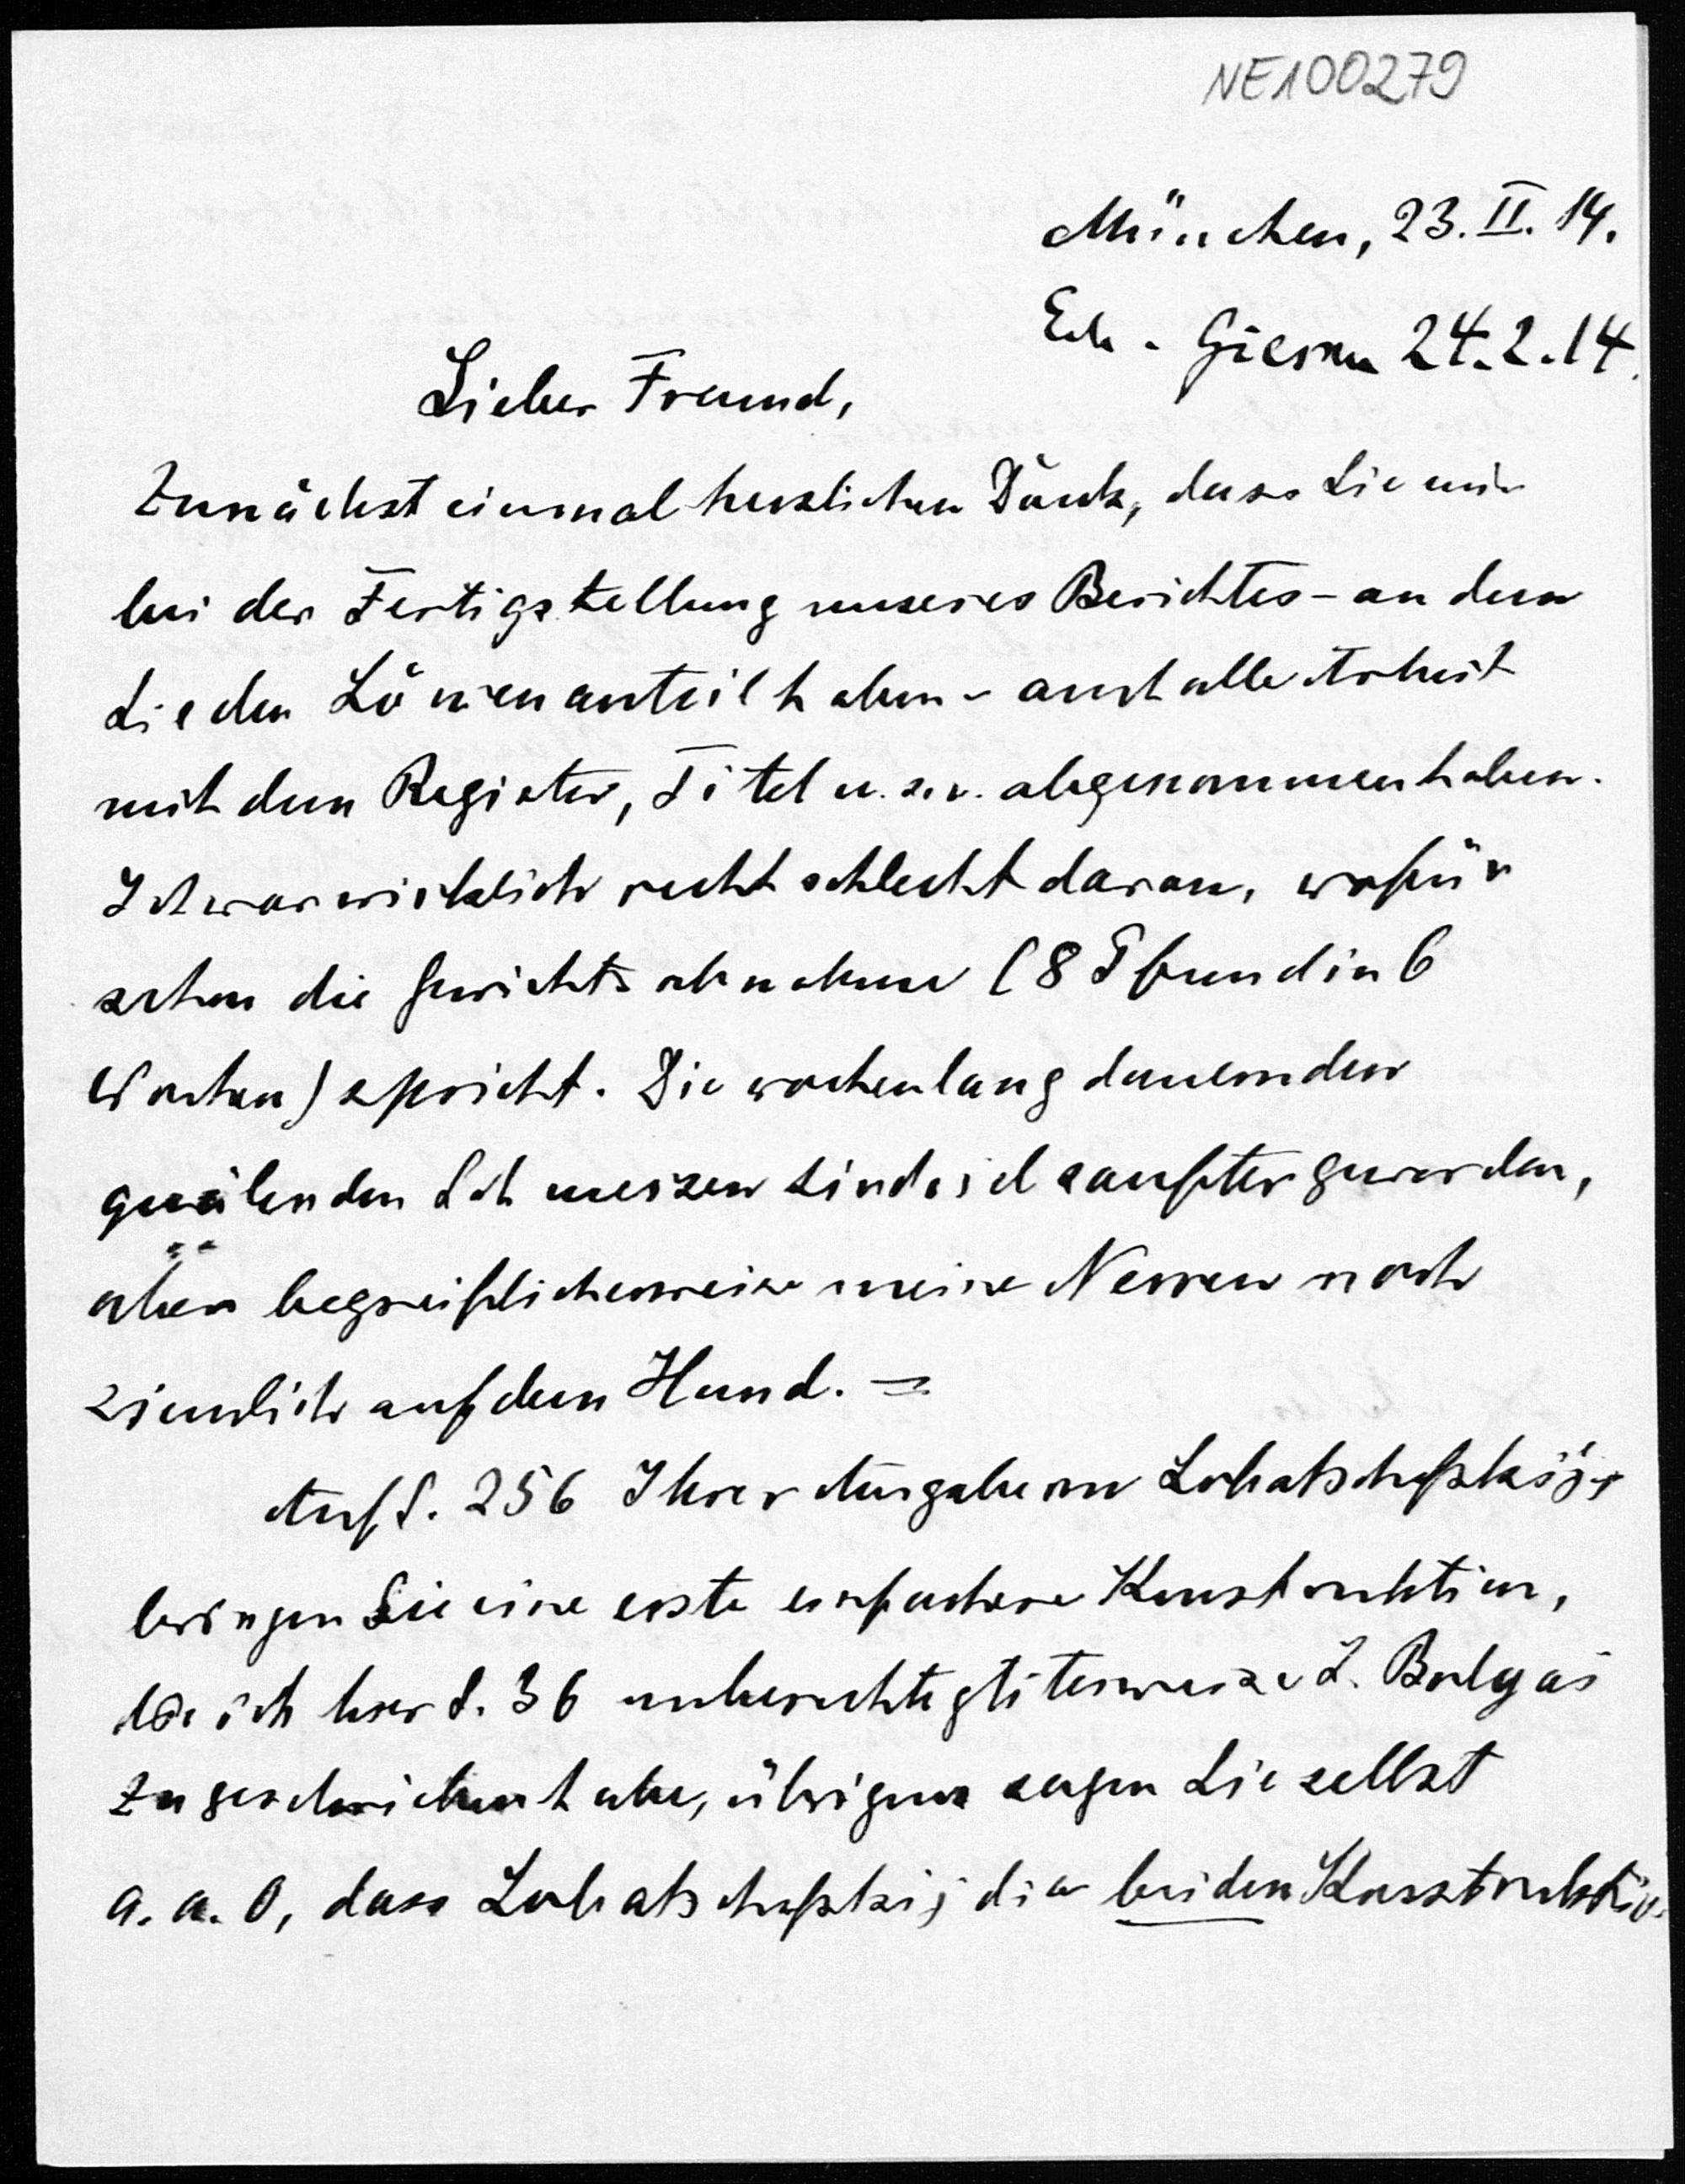 NE100279
München, 23. II. 14.
Erh. Giessen 24.2.14.
Lieber Freund,
Zunächst einmal herzlichen Dank, dass Sie mir
bei der Fertigstellung unseres Berichtes - an dem
Sie den Löwenanteil haben - auch alle Arbeit
mit dem Register, Titel u.s.w. abgenommen haben.
Ich war wirklich recht schlecht daran, wofür
schon die Gewichtsabnahme (8 Pfund in 6
Wochen) spricht. Die wochenlang dauernden
quälenden Schmerzen sind viel sanfter geworden,
aber begreiflicherweise meine Nerven noch
ziemlich auf dem Hund. =
Auf S. 256 Ihrer Ausgabe von Lobatschefskij
bringen Sie eine erste einfachere Konstruktion,
die ich hier S. 36 unberechtigterweise J. Bolyai
zugeschrieben habe, übrigens sagen Sie selbst
a. a. O, dass Lobatschefskij die beiden Konstruktio-